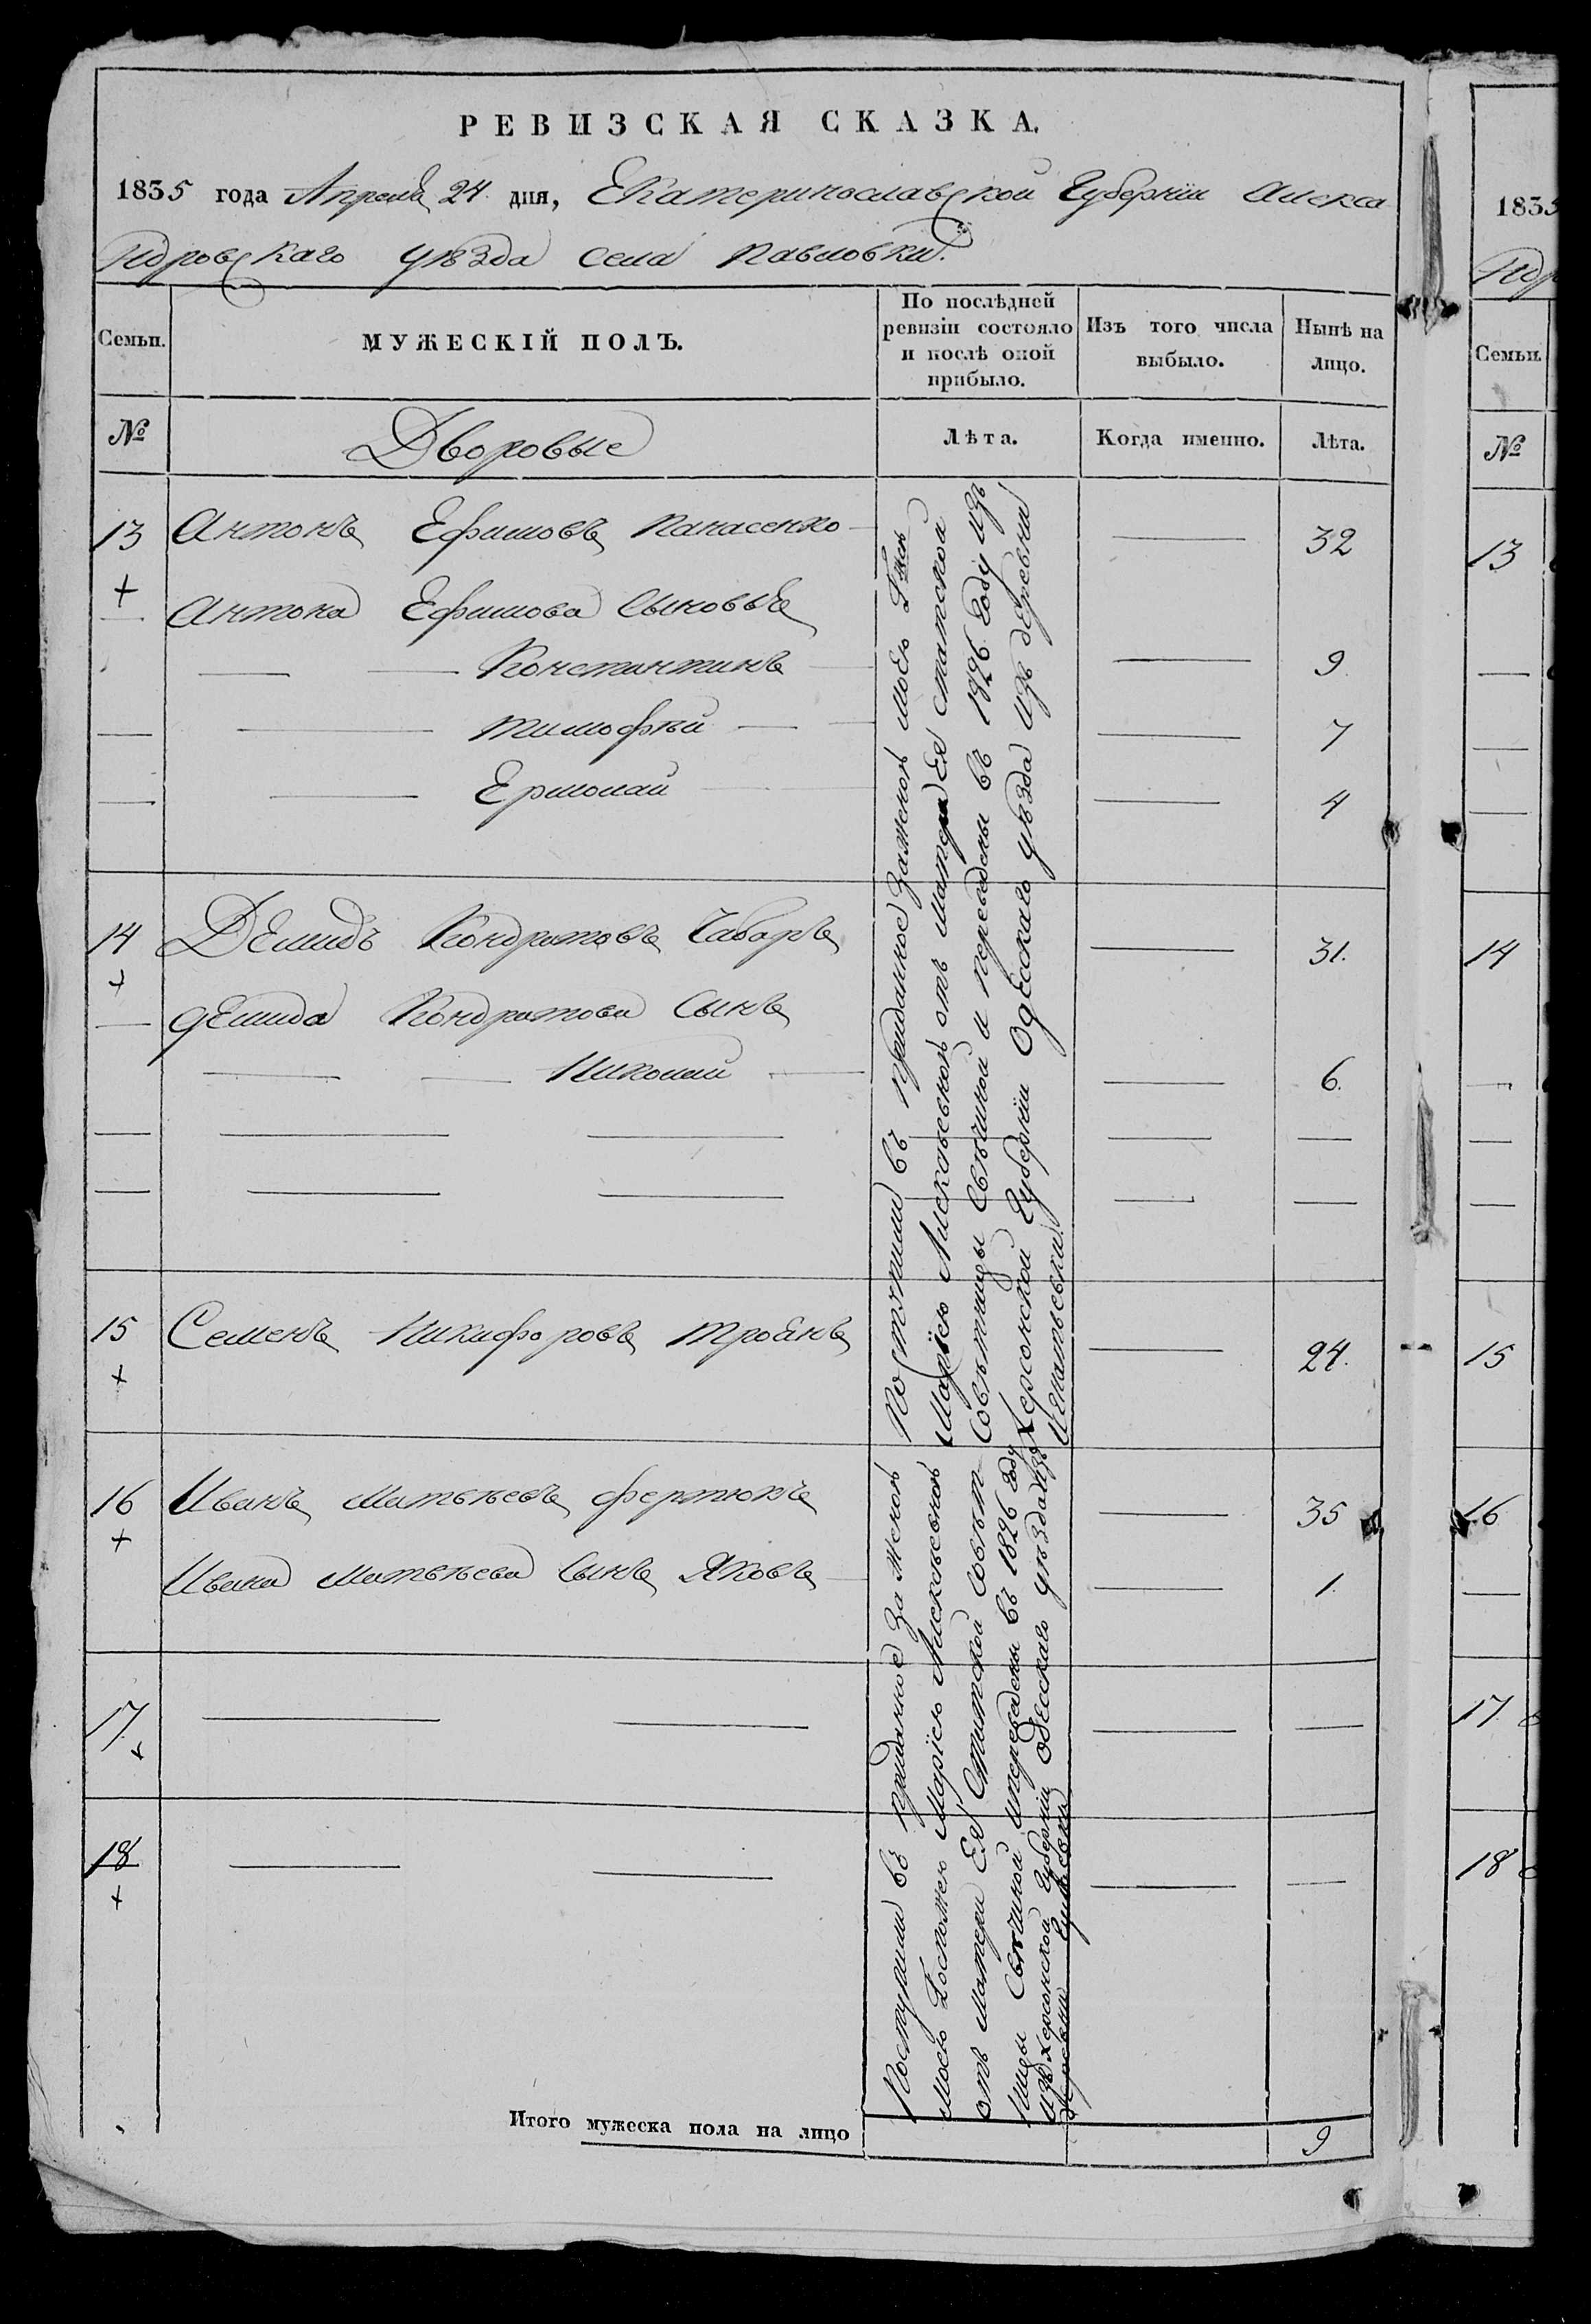 РЕВИЗСКАЯ СКАЗКА.
1835 года Апреля 24 дня, Екатеринославской Губерніи Алекса
ндровскаго уѣзда села Павловки.
Семьи.
МУЖЕСКІЙ ПОЛЪ.
По послѣдней
ревизіи состояло
и послѣ оной
прибыло.
Изъ того числа
выбыло.
Нынѣ на
лицо.
№
Дворовые
Лѣта.
Когда именно.
Лѣта.
13 Антонъ Ефимовъ Панасенко 32
Антона Ефимова Сыновья
Константинъ 9.
Тимофѣй 7
Ермолай 4
14 Демидъ Кондратовъ Чабаръ 31.
Демида Кондратова Сынъ
Николай 6.
15 Семенъ Никифоровъ Троянъ 24.
16 Иванъ Матвѣевъ Фертюкъ 35
Ивана Матвѣева Сынъ Яковъ 1.
17.
18
Поступили въ приданное заженою моею
Маріею Алексѣевною отъ матери Ея статской
Совѣтницы Свѣчиной и переведены въ 1826 году изъ
Херсонской Губерніи Одесскаго уѣзда изъ деревни
Игнатьевки.
Поступили въ приданное за женою
моею Госпожею Маріею Алексѣевною
отъ матери Ея Статской Совѣт
ницы Свѣчиной ипереведены въ 1826 году
изъ Херсонской Губерніи Одесскаго уѣзда изъ
деревни
Итого мужеска пола на лицо 9
1835
ндр
Семьи.
№
13
14
15
16
17
18